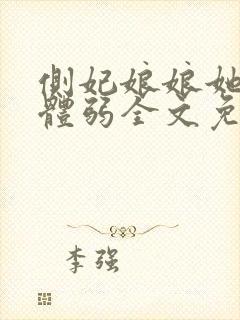 側妃娘娘她
體弱全文免
李强